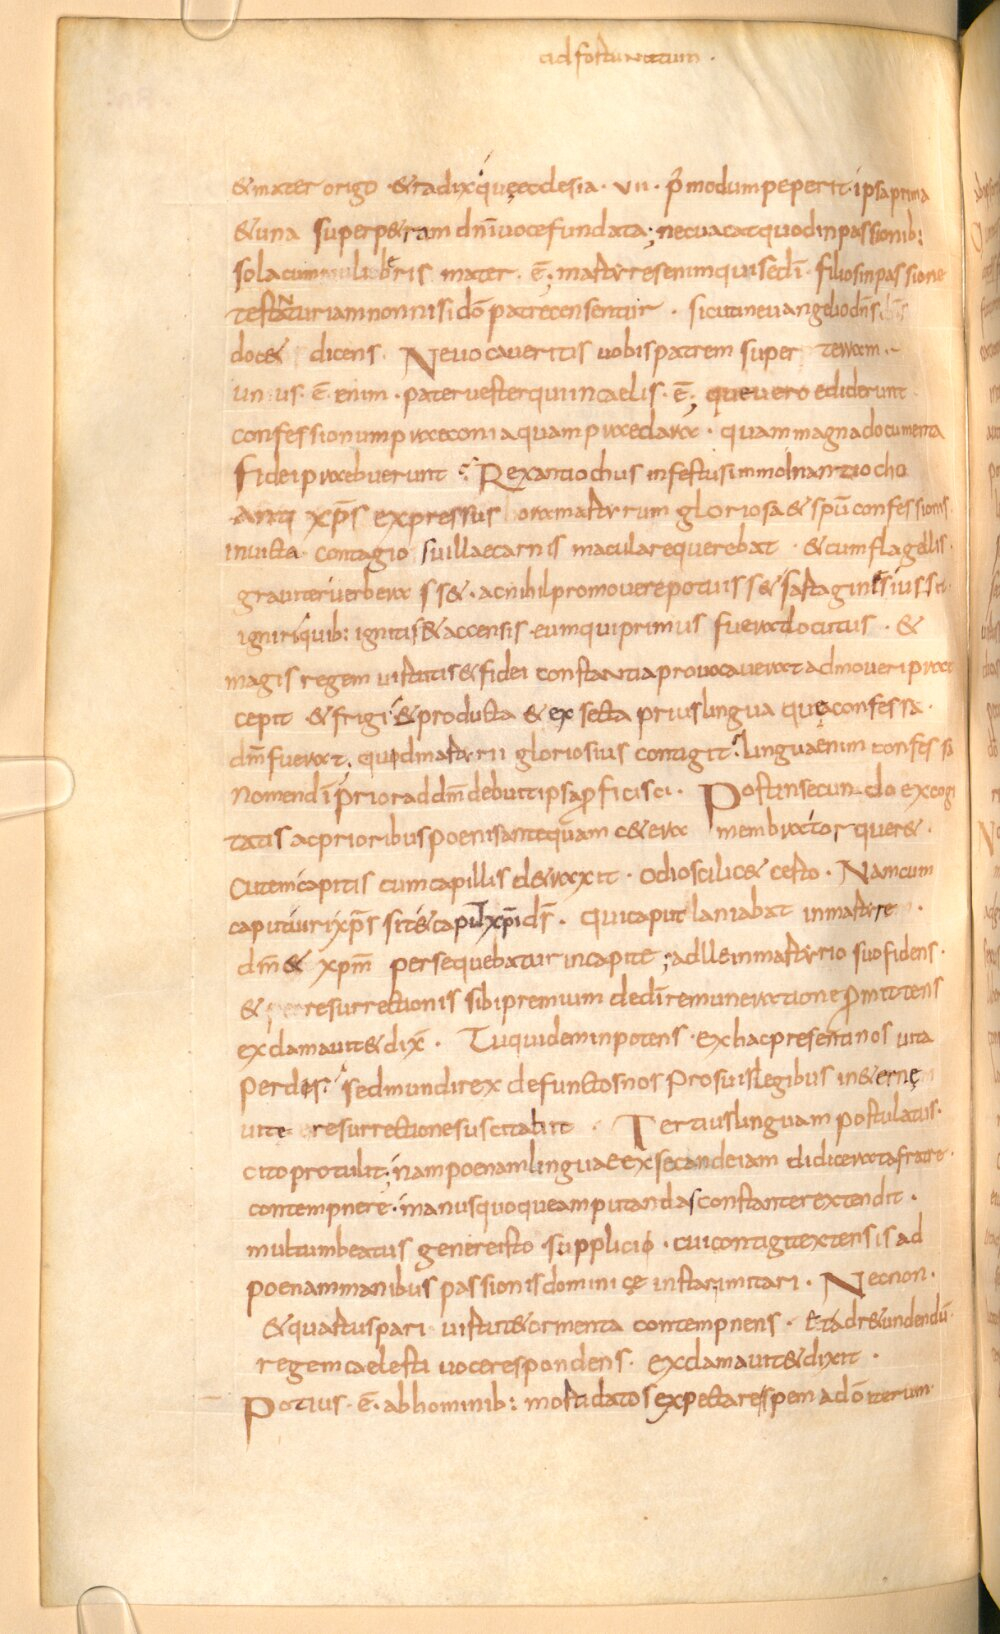 ad fortunatum ·
& mater origo · & radix quę ecclesia · vii · p̄modum peperit · ipsa prima
& una super p&ram dn̄i uoce fundata ; nec uacat quod in passionib:
sola cum mulieberis mater · ē; martyres enim qui se dī filios in passione
testantur iam non nisi dō patre censentur · sicut in euangelio dn̄s
doc& dicens · Ne uocaueritis uobis patrem super terram ·
unus · ē · enim · pater uester qui in caelis · ē; que uero ediderunt
confessionum praeconia quam praeclara · quam magna documenta
fidei praebuerunt : Rex antiochus infestus immo in antiocho
anti xp̄s expressus ora martyrum gloriosa & spū confessionis
inuicta · contagio suillae carnis maculare querebat · & cum flagellis ·
grauiter uerberass& · ac nihil promouere potuiss& sartagines iussit
igniri quib: ignitis & accensis · eum qui primus fuerat locutus · &
magis regem uirtutis & fidei constantia prouocauerat admoueri prae
cepit & frigi · & producta & exsecta prius lingua quę confessa ·
dm̄ fuerat, quod martyrii gloriosius contigit : lingua enim confessa
nomen dī prior ad dm̄ debuit ipsa p̱ficisci · Post in secundo excogi
tatis ac prioribus poenis antequam c&era membra torquer& ·
cutem capitis cum capillis d&raxit · odio scilic& certo · Nam cum
caput uiri xp̄s sit & caput xp̄i ds̄ · qui caput laniabat in martyre ·
dm̄ & xpm̄ persequebatur in capite ; ad ille in martyrio suo fidens ·
& resurrectionis sibi premium de dī remuneratione p̱mittens
exclamauit & dix̄ · Tu quidem inpotens · ex hac presenti nos uita
perdes : sed mundi rex defunctos nos pro suis legibus in &ernę
uite resurrectione suscitabit · Tertius linguam postulatus ·
cito protulit ; nam poenam linguae exsecandae iam didicerat a fratre ·
contempnere · manus quoque amputandas constanter extendit ·
multum beatus genere isto supplicio · cui contigit extensis ad
poenam manibus passionis dominicę instar imitari · Necnon ·
& quartus pari uirtut& ormenta contempnens · Et ad r&undendū
regem caelesti uoce respondens · exclamauit & dixit ·
Potius · ē · ab hominib: morti datos expectare spem a dō iterum